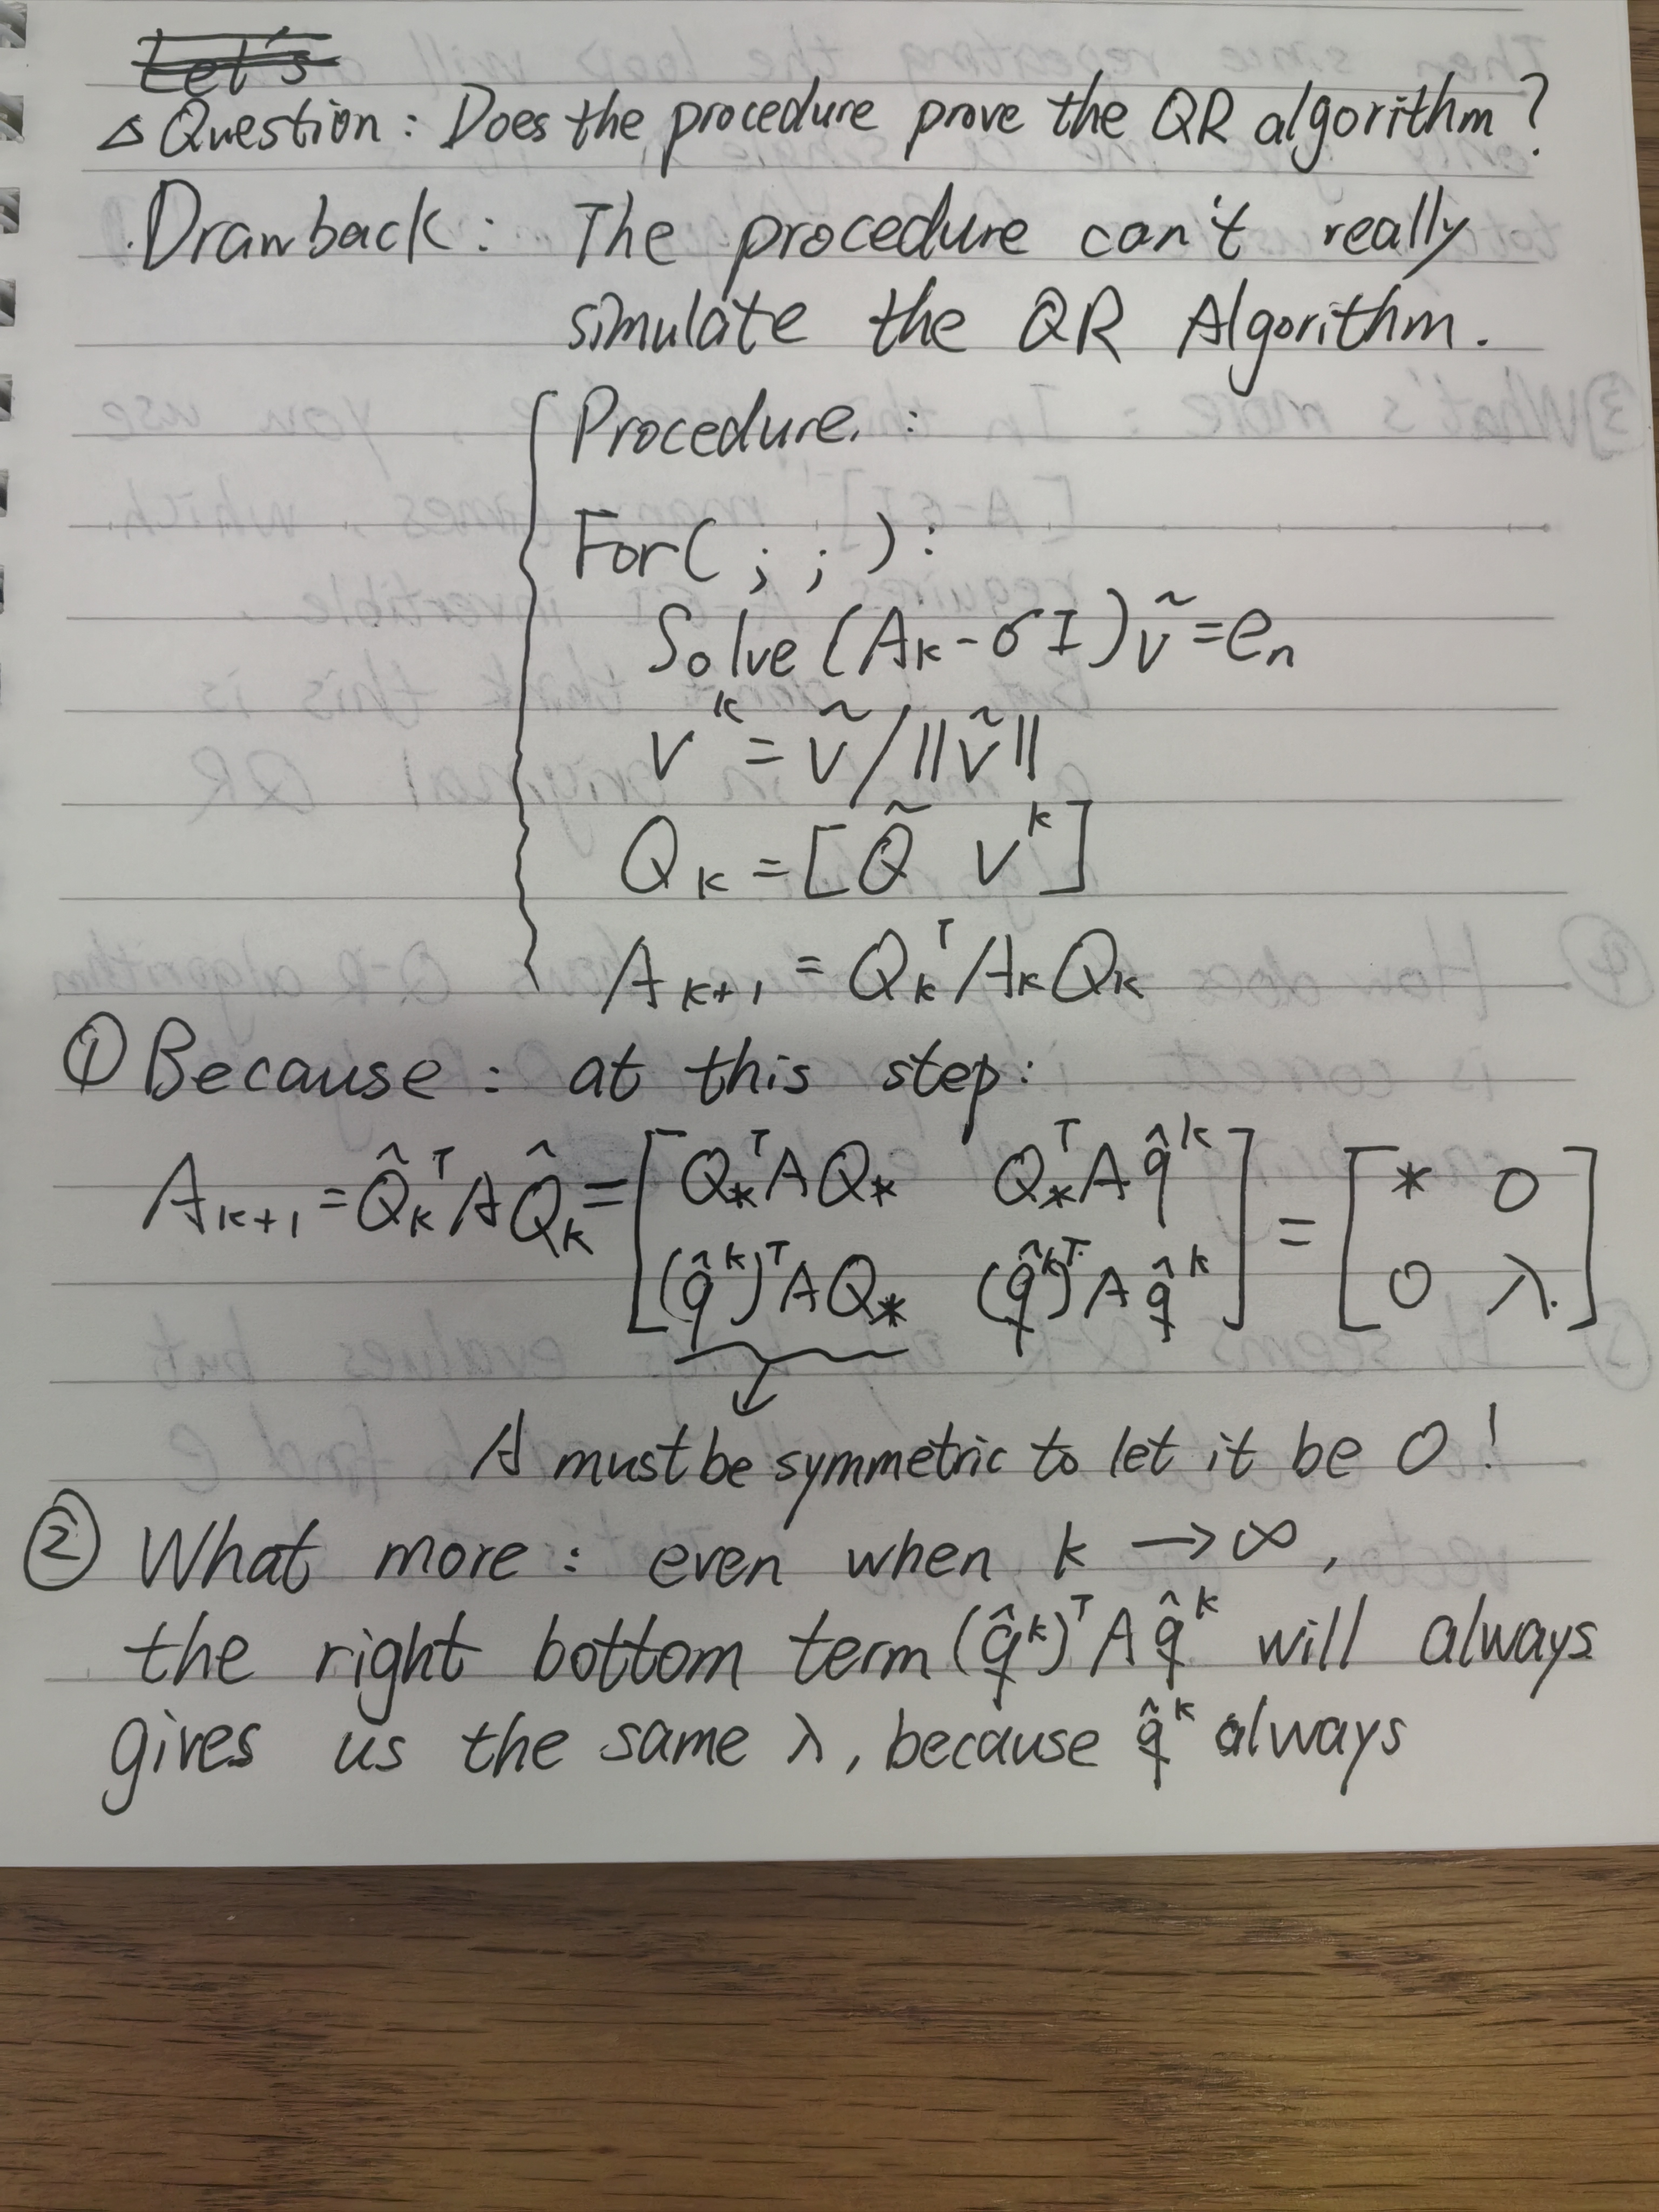 Let's
△ Question : Does the procedure prove the QR algorithm ?
Drawback : The procedure can't really
simulate the QR Algorithm.
Procedure. :
For( ; ; ) :
Solve (Aₖ - σI)ṽ = eₙ
vᵏ = ṽ / ||ṽ||
Qₖ = [Q̃ vᵏ]
Aₖ₊₁ = QₖᵀAₖQₖ
① Because : at this step :
Aₖ₊₁ = Q̂ₖᵀAQ̂ₖ = [Q⁎ᵀAQ⁎ Q⁎ᵀAq̂ᵏ] = [* 0]
[(q̂ᵏ)ᵀAQ⁎ (q̂ᵏ)ᵀAq̂ᵏ] [0 λ.]
A must be symmetric to let it be 0 !
② What more : even when k → ∞ ,
the right bottom term (q̂ᵏ)ᵀAq̂ᵏ will always
gives us the same λ , because q̂ᵏ always